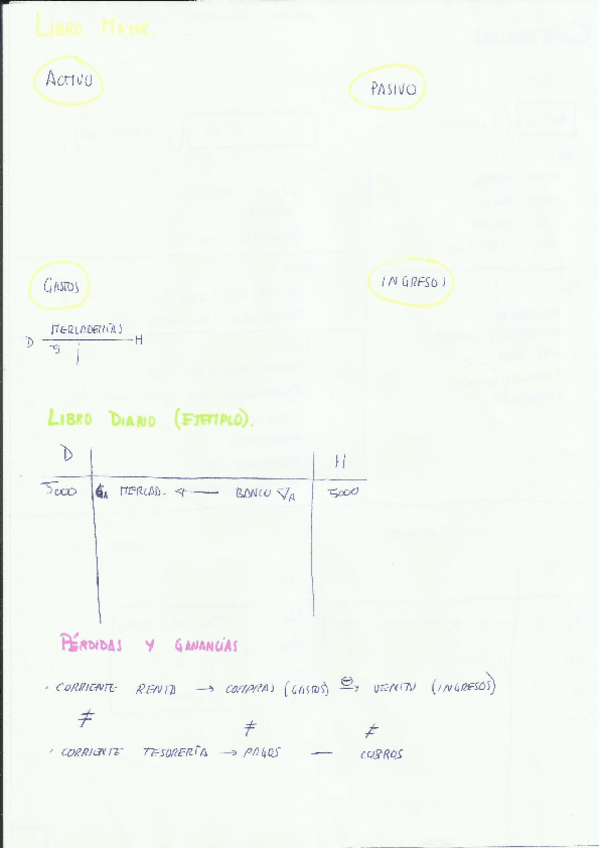 LIBRO MAYOR.
ACTIVO
PASIVO
GASTOS
INGRESOS
MERCADERÍAS
D H
LIBRO DIARIO (EJEMPLO).
D H
5000 MERCAD. ← BANCO ▽A 5000
PÉRDIDAS Y GANANCIAS
· CORRIENTE RENTA → COMPRAS (GASTOS) VENTAS (INGRESOS)
≠ ≠ ≠
· CORRIENTE TESORERÍA → PAGOS — COBROS